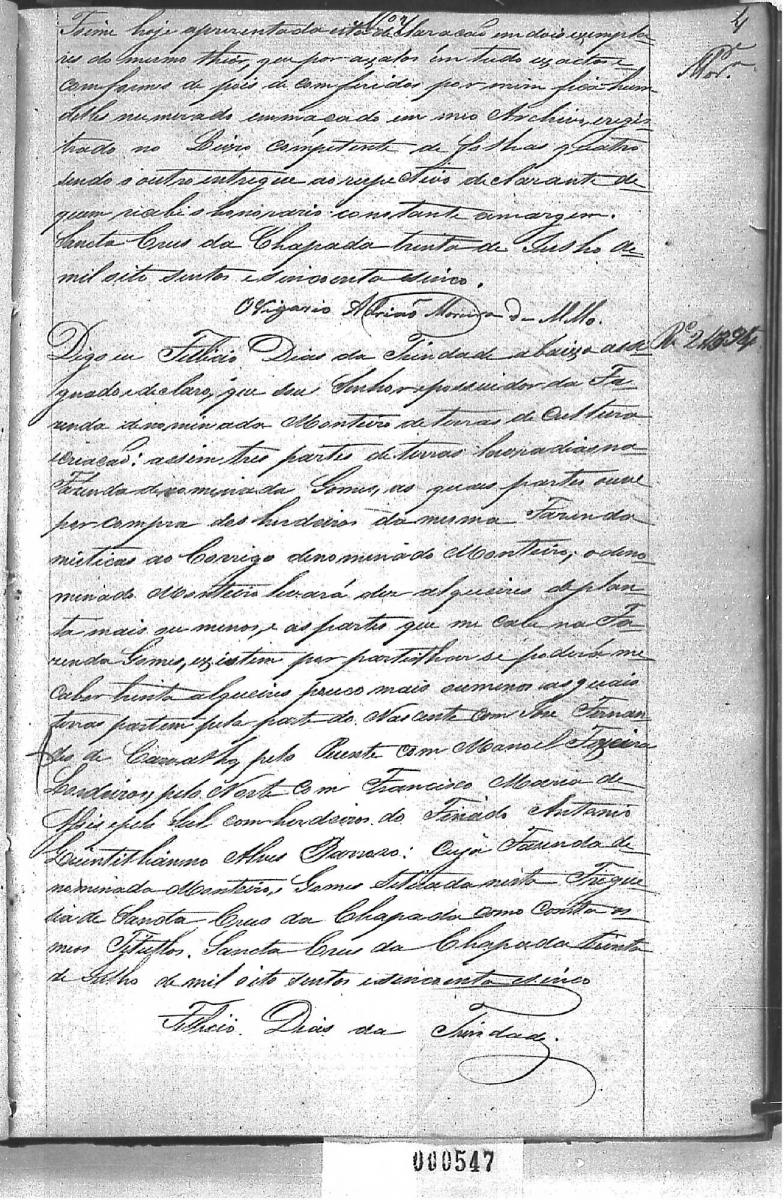 4
Mor.
Foime hoje apresentada esta declaração em dois exempla-
res do mesmo theor, que por axalos em tudo exactos e
comformes de pois de comferidos por mim fica hum
delles numerado emmaçado em meo Archivo, e regis-
trado no Livro competente de folhas quatro
sendo o outro entregue ao respectivo declarante de
quem recebi o honorario constante a margem.
Sancta Crus da Chapada trinta de Julho de
mil oito sentos e sincoenta e sinco.
O Vigario Adriano Moreira
Digo eu Fellicio Dias da Trindade abaixo assi-
gnado e declaro, que sou Senhor e possuidor da Fa-
zenda denominada Monteiro de terras de Cultura
e criação: assim tres partes de terras lavradias na
Fazenda denominada Gomes, as quaes partes ouve
por compra dos herdeiros da mesma Fazenda
misticas ao Corrigo denominado Monteiro; o deno-
minado Monteiro levará des alqueires de plan-
ta mais ou menos, e as partes que me cabe na Fa-
zenda Gomes, existem por partilhar se poderá me
caber trinta alqueires pouco mais ou menos as quais
terras partem pela parte do Nascente com Jose Fernan-
des de Carvalho, pelo Poente com Manoel Teixeira
Cordeiro, pelo Norte com Francisco Maria de
Assis e pelo Sul com herdeiros do Finado Antonio
Quintilhianno Alves Barrozo: Cuja Fazenda de-
nominada Monteiro, Gomes Sitiada nesta Fregue-
sia de Sancta Crus da Chapada como consta os
meos Tytullos. Sancta Crus da Chapada trinta
de Julho de mil oito sentos e sincoenta e sinco
Fellicio Dias da Trindade.
000547